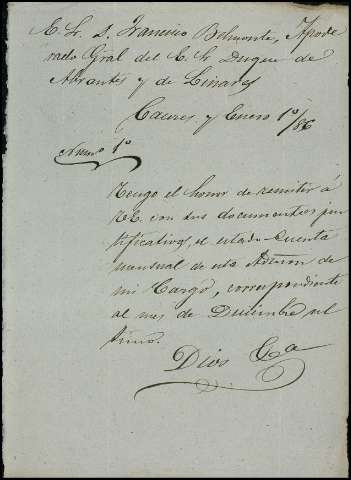 E. Sr. D. Francisco Belmonte, Apode
rado Gral del E. Sr Duque de
Abrantes y de Linares
Caceres y Enero 1º/86
Numº 1º
Tengo el honor de remitir á
VE. con sus documentos jus
tificativos, el estado Cuenta
mensual de esta Admon de
mi Cargo, correspondiente
al mes de Diciembre ul
timo.
Dios Ga